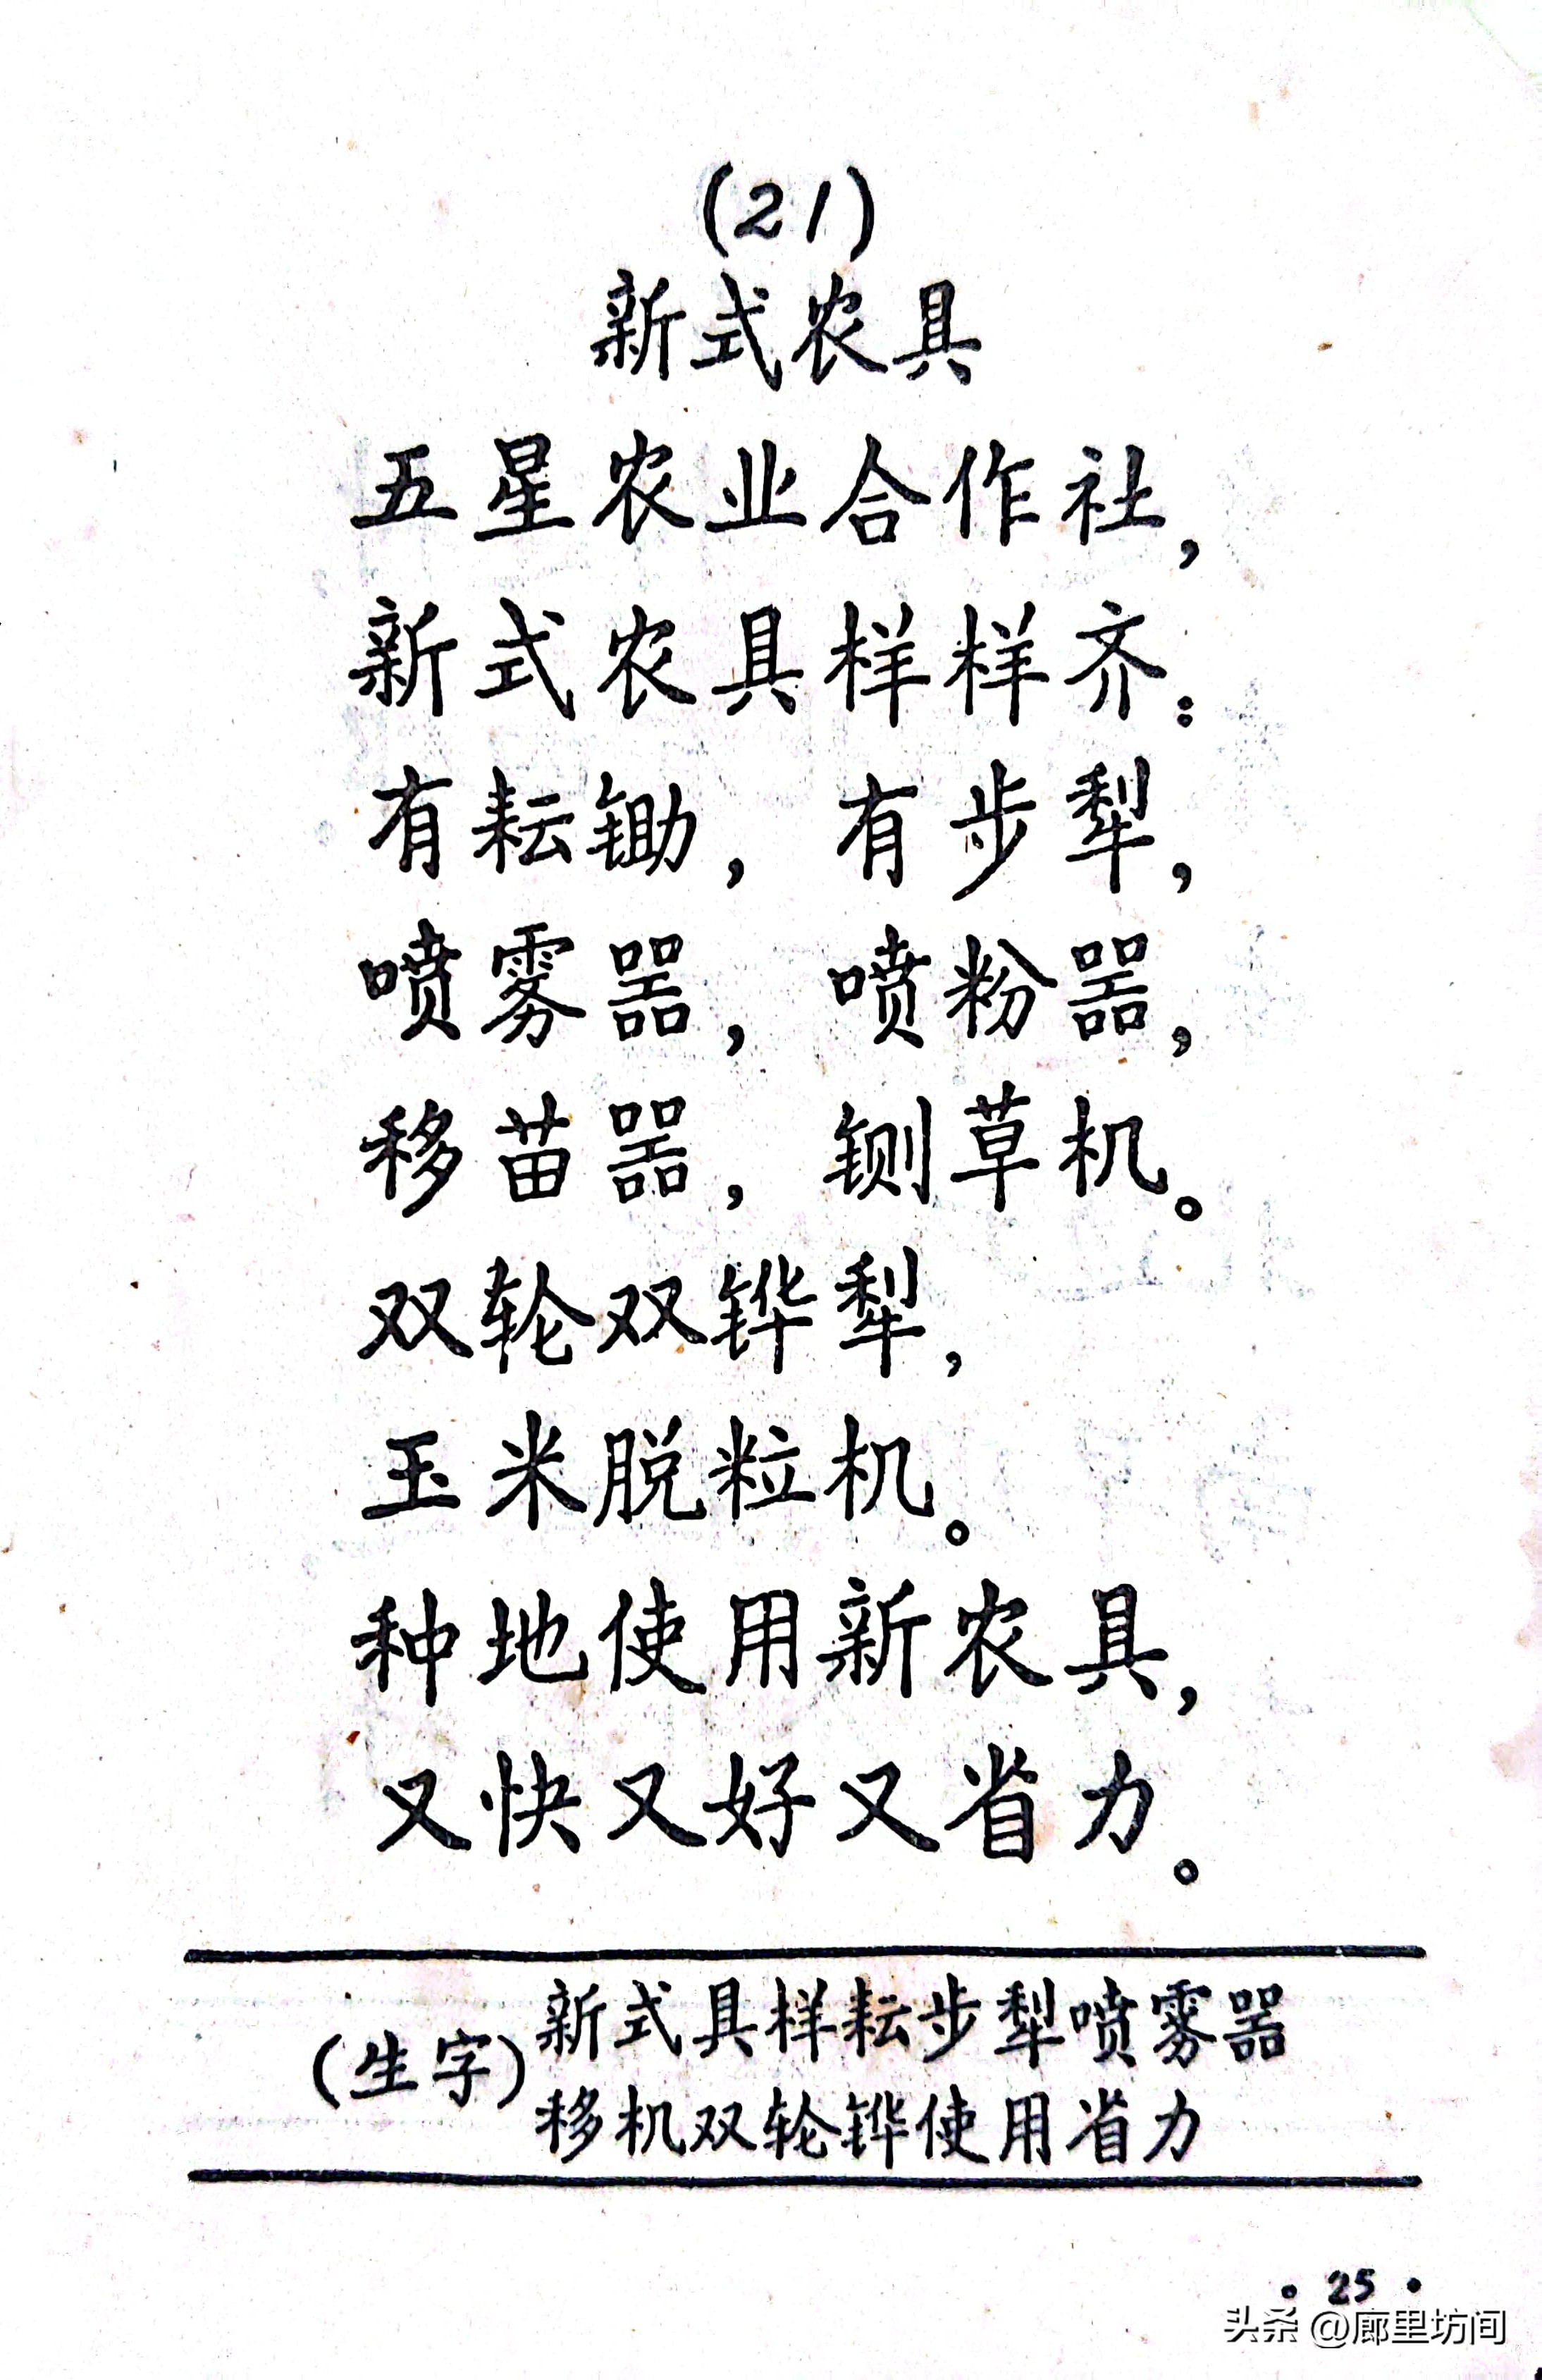 (21)
新式农具
五星农业合作社，
新式农具样样齐：
有耘锄，有步犁，
喷雾器，喷粉器，
移苗器，铡草机。
双轮双铧犁，
玉米脱粒机。
种地使用新农具，
又快又好又省力。
(生字)新式具样耘步犁喷雾器
移机双轮铧使用省力
·25·
头条@廊里坊间